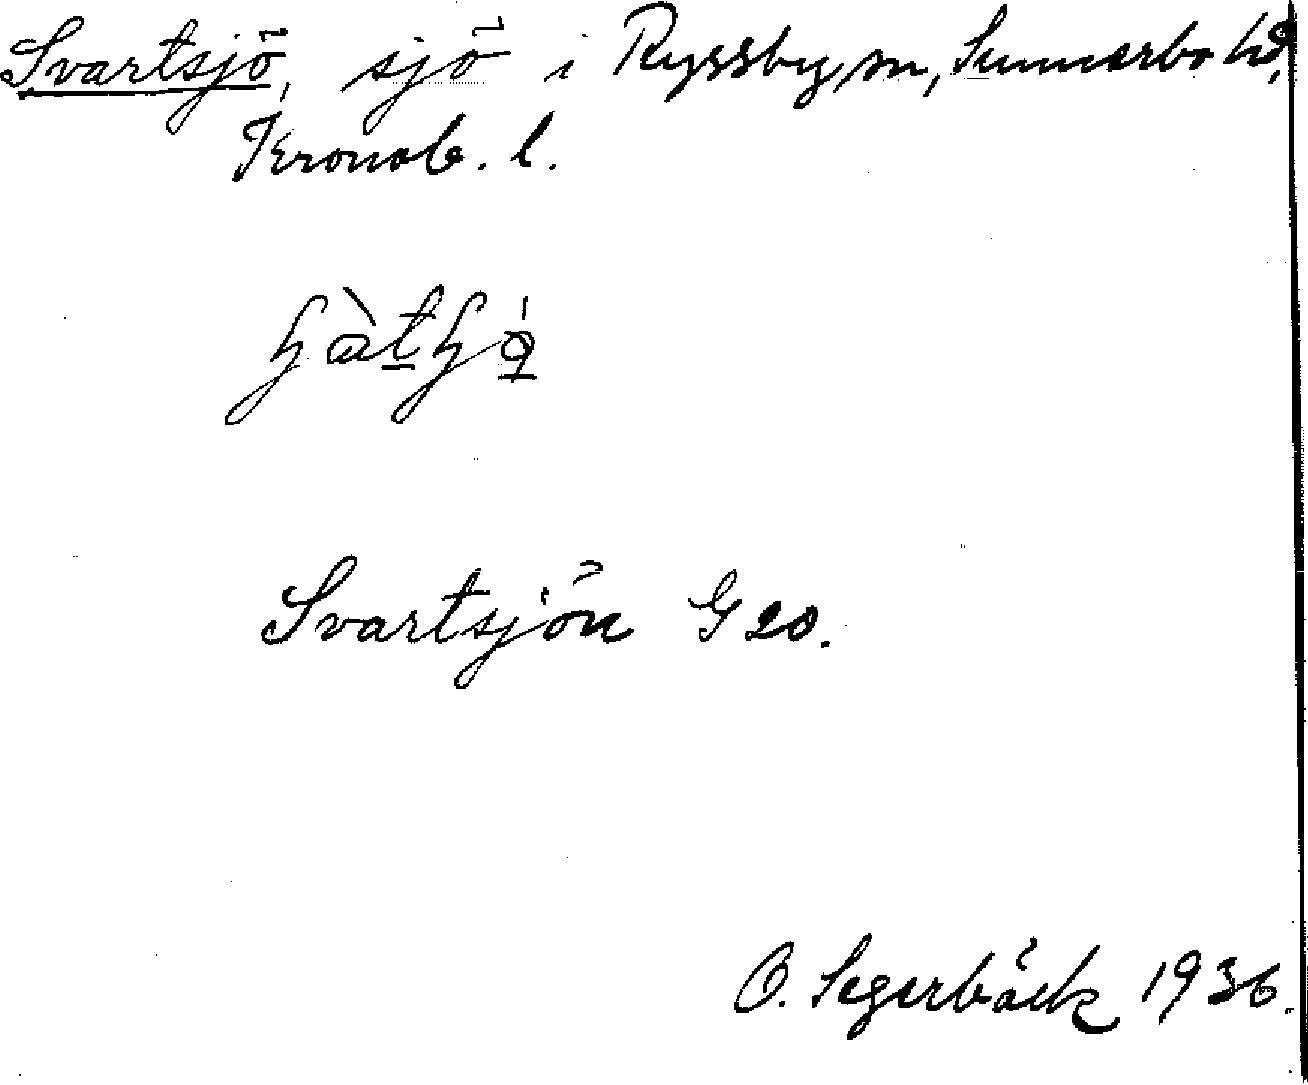 Svartsjö, sjö i Ryssby sn, Sunnerbo hd,
Kronob. l.
Svartsjön G 20.
B. Segerbäck 1936.